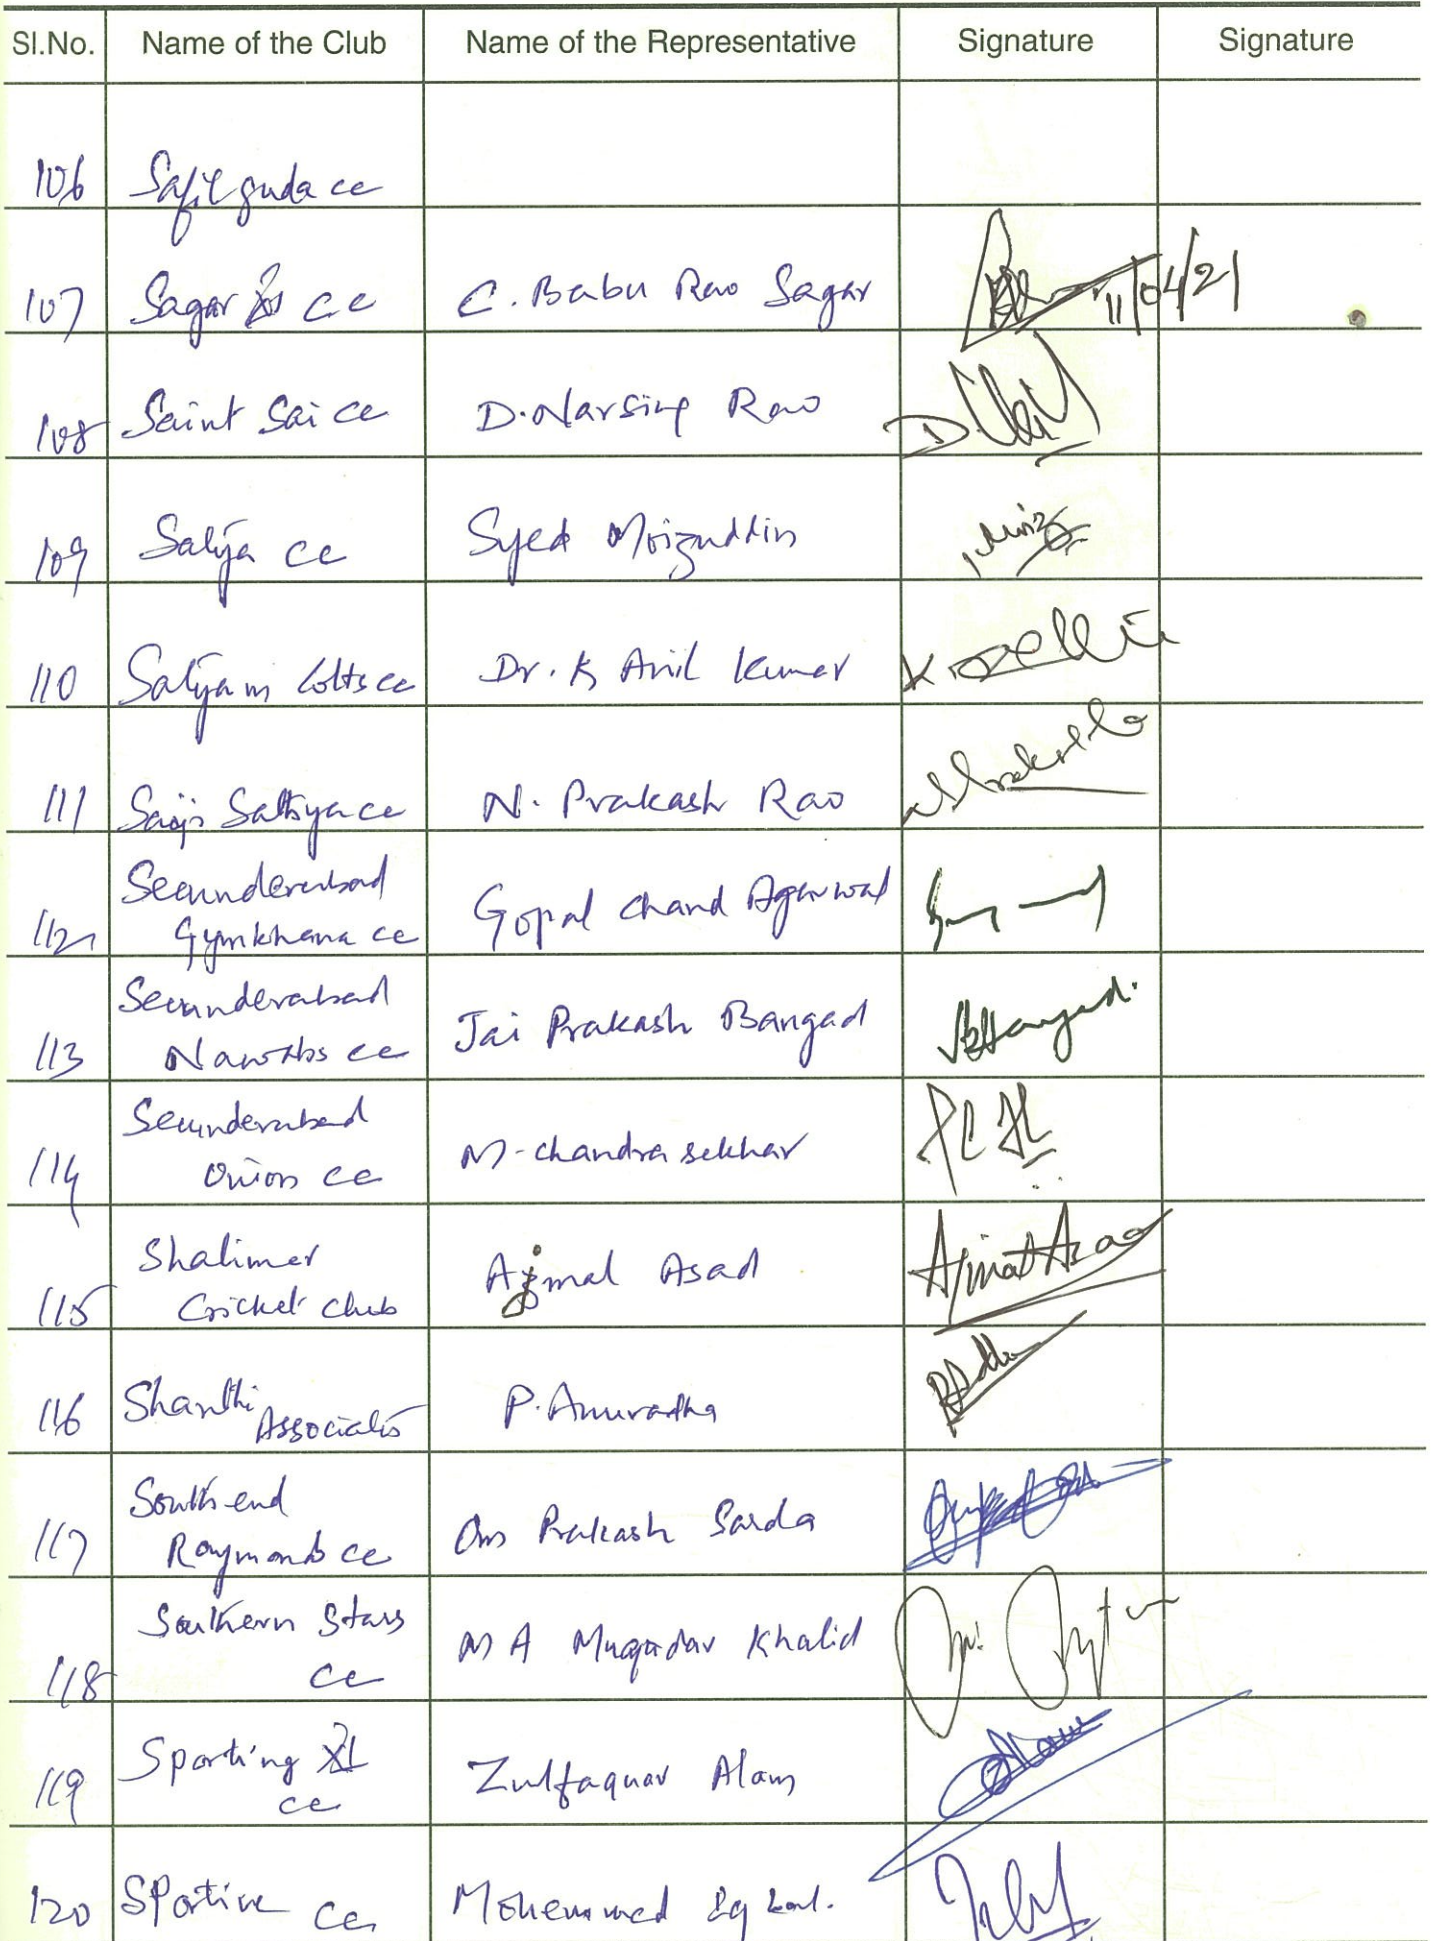 Sl.No. Name of the Club Name of the Representative Signature Signature
106 Safilguda cc
107 Sagar XI C.C C. Babu Rao Sagar 11/04/21
108 Saint Sai cc D. Narsing Rao
109 Satya cc Syed Moizuddin
110 Satyam Colts cc Dr. K Anil Kumar
111 Sathya cc N. Prakash Rao
Secunderabad
112 Gymkhana cc Gopal chand Agarwal
Secunderabad
113 Nawabs cc Jai Prakash Bangad
Secunderabad
114 Union cc M. chandra sekhar
Shalimar
115 Cricket club Ajmal Asad Ajmal Asad
116 Shanthi P. Anuradha
Associatio
South end
117 Raymonds cc Om Prakash Sarda
Southern Stars
118 cc M A Muqadar Khalid
Sporting XI
119 cc Zulfaquar Alam
120 SPortive cc Mohammed Eqbal.